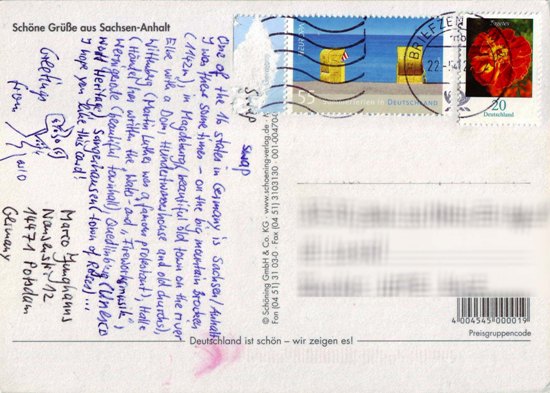 Schöne Grüße aus Sachsen-Anhalt
swap
One of the 16 states in Germany is Sachsen/Anhalt
I was there some times - on the big mountain Brocken
(1142m), in Magdeburg (beautiful old town on the river
Elbe with a Dom, Hundertwasserhouse and old churchs),
Wittenberg (Martin Luther was a famous protestant), Halle
(Händel lived in with the "Water" and "Fireworksmusik")
Wernigerode (beautiful townhall), Quedlinburg (UNESCO
World Heritage), Sangerhausen (town of Roses)...
I hope you like this card!
Greetings
from
Marco Junghanns
14471 Potsdam
Germany
© Schöning GmbH & Co. KG · www.schoening-verlag.de
Fon (04 51) 31 03-0 · Fax (04 51) 3103130
swap
55
in DEUTSCHLAND
BRIEFZEN
22-5
Tagetes
20
Deutschland
4 004545 000019
Preisgruppencode
Deutschland ist schön – wir zeigen es!